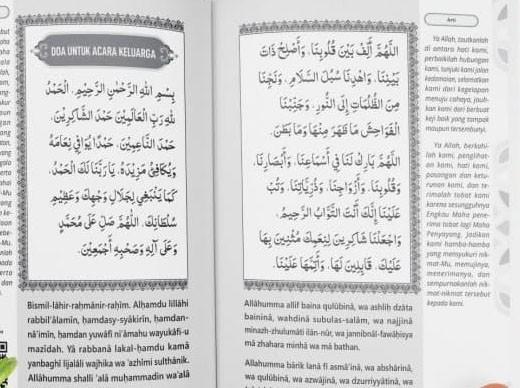 DOA UNTUK ACARA KELUARGA
بِسْمِ اللهِ الرَّحْمٰنِ الرَّحِيْمِ. الْحَمْدُ
لِلّٰهِ رَبِّ الْعَالَمِيْنَ حَمْدَ الشَّاكِرِيْنَ.
حَمْدَ النَّاعِمِيْنَ. حَمْدًا يُوَافِي نِعَامَهُ
وَيُكَافِئُ مَزِيْدَهُ. يَا رَبَّنَا لَكَ الْحَمْدُ.
كَمَا يَنْبَغِي لِجَلَالِ وَجْهِكَ وَعَظِيْمِ
سُلْطَانِكَ. اللّٰهُمَّ صَلِّ عَلَى مُحَمَّدٍ
وَعَلَى آلِهِ وَصَحْبِهِ أَجْمَعِيْنَ.
Bismil-lāhir-raḥmānir-raḥīm. Alḥamdu lillāhi
rabbil'ālamīn, ḥamdasy-syākirīn, ḥamdan-
nā'imīn, ḥamdan yuwāfī ni'āmahu wayukāfi-u
mazīdah. Yā rabbanā lakal-ḥamdu kamā
yanbaghī lijalāli wajhika wa 'azhīmi sulthānik.
Allāhumma shalli 'alā muḥammadin wa'alā
اللّٰهُمَّ أَلِّفْ بَيْنَ قُلُوْبِنَا. وَأَصْلِحْ ذَاتَ
بَيْنِنَا. وَاهْدِنَا سُبُلَ السَّلَامِ. وَنَجِّنَا
مِنَ الظُّلُمَاتِ إِلَى النُّوْرِ. وَجَنِّبْنَا
الْفَوَاحِشَ مَا ظَهَرَ مِنْهَا وَمَا بَطَنَ.
اللّٰهُمَّ بَارِكْ لَنَا فِي أَسْمَاعِنَا. وَأَبْصَارِنَا.
وَقُلُوْبِنَا. وَأَزْوَاجِنَا. وَذُرِّيَّاتِنَا. وَتُبْ
عَلَيْنَا إِنَّكَ أَنْتَ التَّوَّابُ الرَّحِيْمُ.
وَاجْعَلْنَا شَاكِرِيْنَ لِنِعْمِكَ مُثْنِيْنَ بِهَا
عَلَيْكَ. قَابِلِيْنَ لَهَا. وَأَتِمَّهَا عَلَيْنَا.
Allāhumma allif baina qulūbinā, wa ashliḥ dzāta
baininā, wahdinā subulas-salām, wa najjinā
minazh-zhulumāti ilān-nūr, wa jannibnāl-fawāḥisya
mā zhahara minhā wa mā bathan.
Allāhumma bārik lanā fī asmā'inā, wa abshārinā,
wa qulūbinā, wa azwājinā, wa dzurriyyātinā, wa
Arti
Ya Allah, tautkanlah
di antara hati kami,
perbaikilah hubungan
kami, tunjuki kami jalan
kedamaian, selamatkan
kami dari kegelapan
menuju cahaya, jauh-
kan kami dari berbuat
keji baik yang tampak
maupun tersembunyi.
Ya Allah, berkahi-
lah kami, penglihat-
an kami, hati kami,
pasangan dan ketu-
runan kami, dan te-
rimalah tobat kami
karena sesungguhnya
Engkau Maha pene-
rima tobat lagi Maha
Penyayang. Jadikan
kami hamba-hamba
yang mensyukuri nik-
mat-Mu, memujinya,
menerimanya, dan
sempurnakanlah nik-
mat-nikmat tersebut
kepada kami.